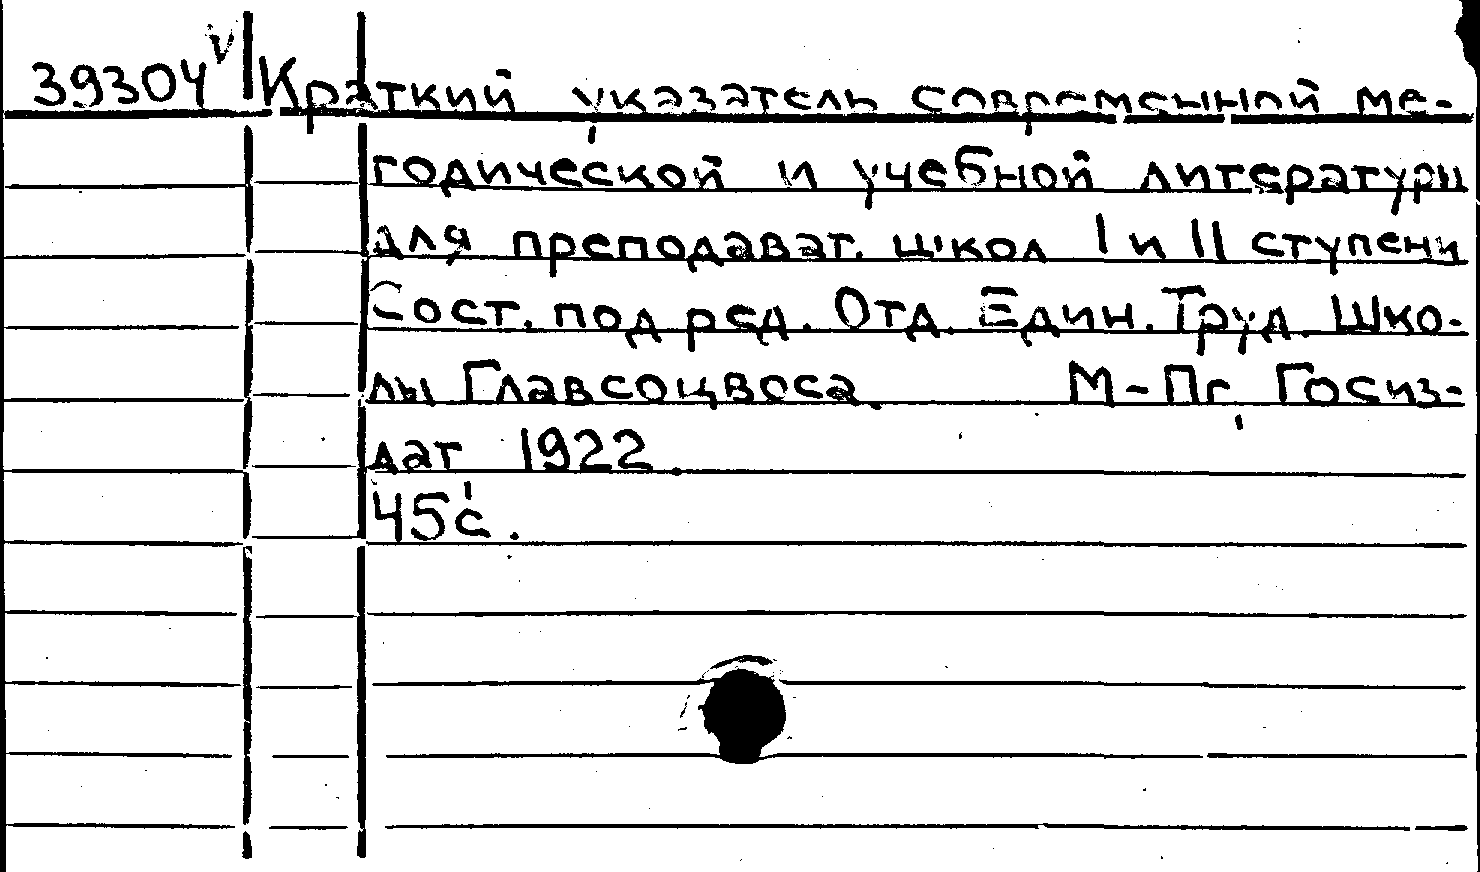 39304 v Краткий указатель современной ме-
тодической и учебной литературы
для преподават. школ I и II ступени
Сост. под ред. Отд. Един. Труд. Шко-
лы Главсоцвоса. М-Пг, Госиз-
дат 1922.
45 с.